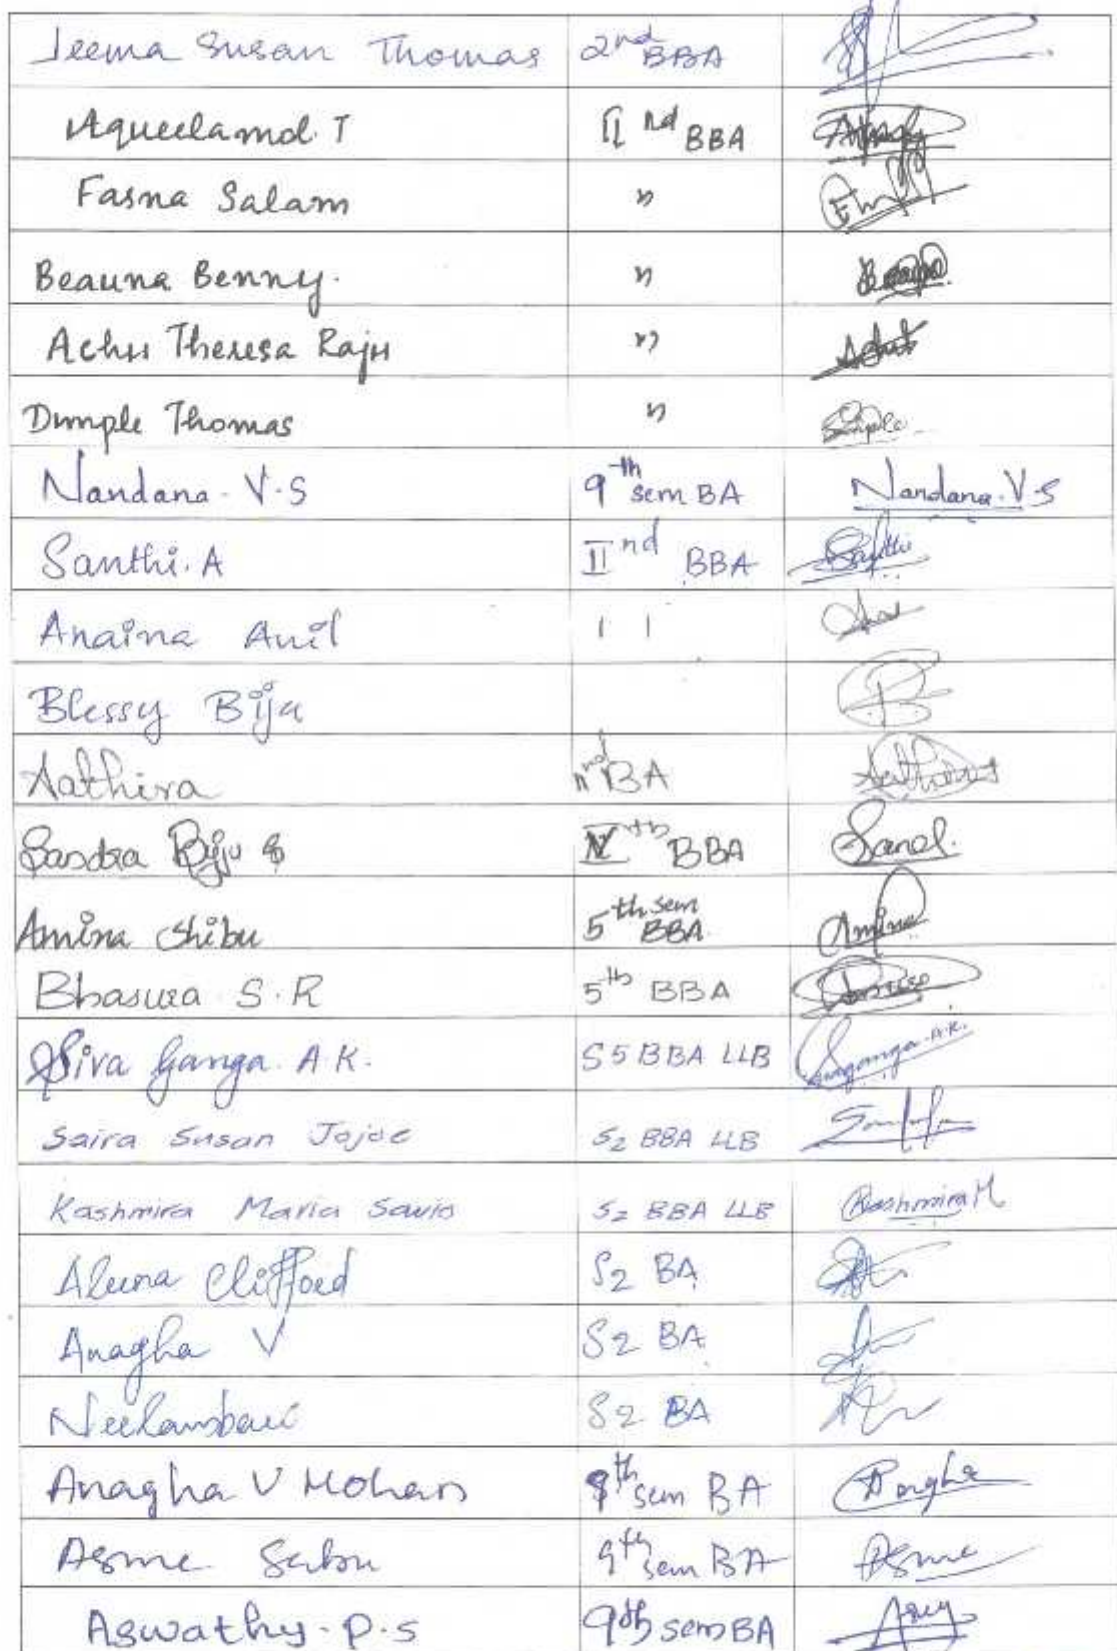 Jeema Susan Thomas 2nd BBA
Aqueelamol. T II nd BBA
Fasna Salam "
Beauna Benny. "
Achu Theresa Raju "
Dimple Thomas "
Nandana. V.S 9th sem BA Nandana. V.S
Santhi. A II nd BBA Santhi
Anaina Anil 1 1
Blessy Bija B
Aathira IInd BA Aathira
Sandra Biju S Vth BBA Sand.
Amina Shibu 5th sem BBA Amina
Bhasura S.R 5th BBA
Siva Ganga. A.K. S5 BBA LLB
Saira Susan Jojoe S2 BBA LLB
Kashmira Maria Savio S2 BBA LLB Kashmira M
Aleena Clifford S2 BA
Anagha V S2 BA
Neelambari S2 BA
Anagha V Mohan 9th sem BA Anagha
Asme Sabu 9th sem BA Asme
Aswathy. P.S 9th sem BA